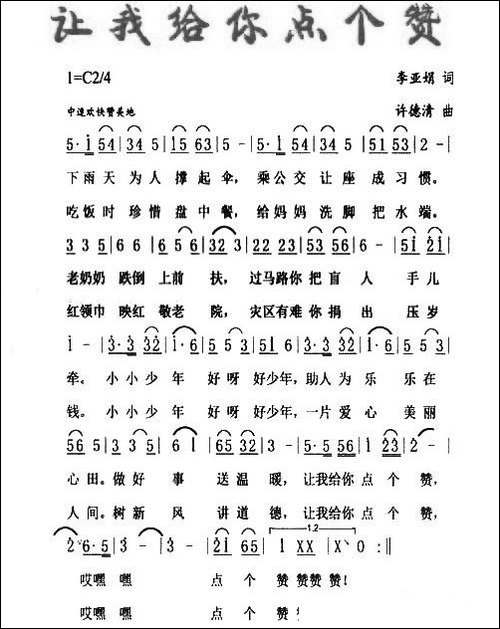 让我给你点个赞
1=C2/4 李亚娟 词
中速欢快赞美地 许德清 曲
5·1 54|34 5|15 63|5 -|5·1 54|34 5|15 53|2 -|
下雨天 为人 撑起伞，乘公交 让座 成习惯。
吃饭时 珍惜 盘中餐，给妈妈 洗脚 把水端。
3 3 5|6 6|6 5 6|32 3|22 23|53 56|6 -|51 21|
老奶奶 跌倒 上前 扶，过马路你 把盲 人 手儿
红领巾 映红 敬老 院，灾区有难 你捐 出 压岁
1 -|3·3 32|1·6|5 5 3|51 6|3·3 32|1·6|5 5 3|
牵。小小少 年 好呀 好少年，助人 为 乐 乐在
钱。小小少 年 好呀 好少年，一片 爱 心 美丽
56 5|3 3 5|6 1|65 32|3 -|5·5 56|1 23|2 -|
心田。做好 事 送温 暖，让我给你 点个赞，
人间。树新 风 讲道 德，让我给你 点个赞，
2 6·5|3 -|3 -|21 65|1 XX|X 0:||
1.2
哎嘿 嘿 点 个 赞 赞赞 赞！
哎嘿 嘿 点 个 赞